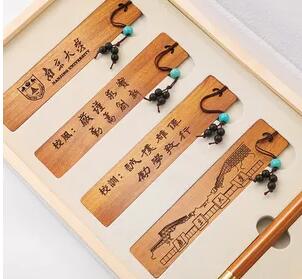 南京大学
NANJING UNIVERSITY
校風：嚴謹求實
勤奮創新
校訓：誠樸雄偉
勵學敦行